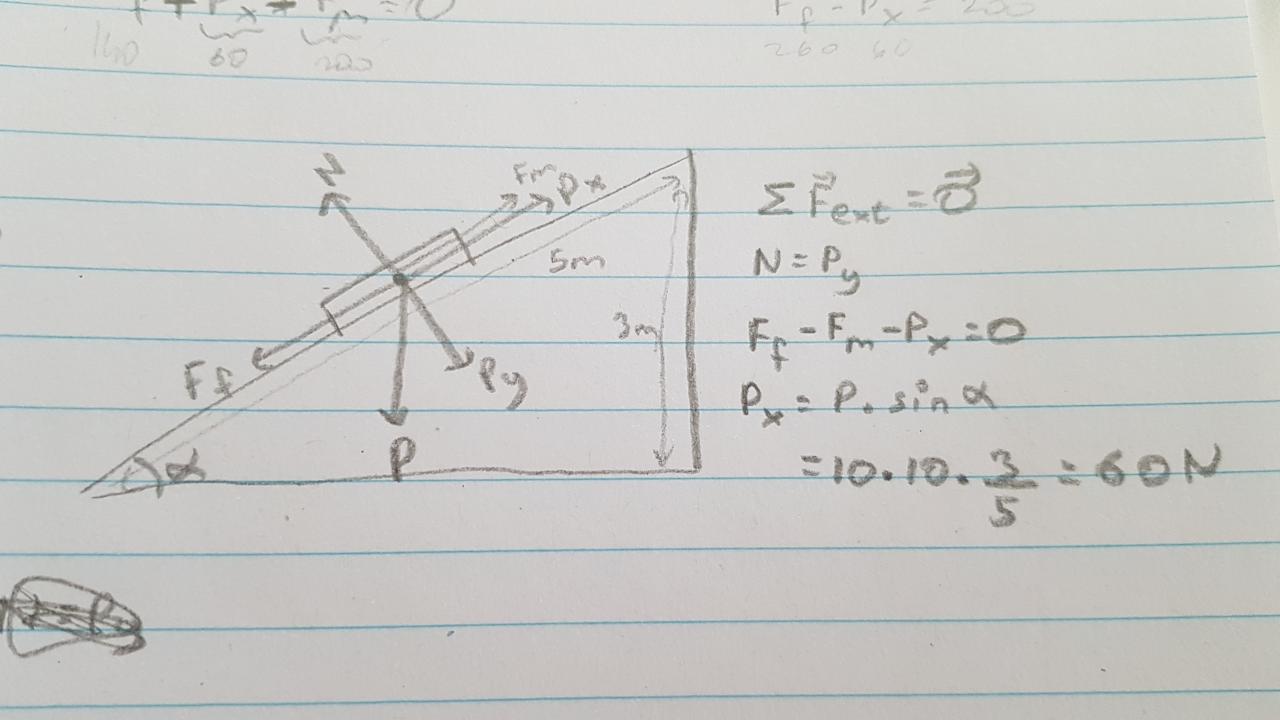 + Px + Fm = 0
140 60 200
Ff - Px = 200
260 60
N
Fm Px
5m
3m
Ff
Py
P
α
Σ F⃗ext = 0⃗
N = Py
Ff - Fm - Px = 0
Px = P. sin α
= 10.10. 3/5 = 60 N